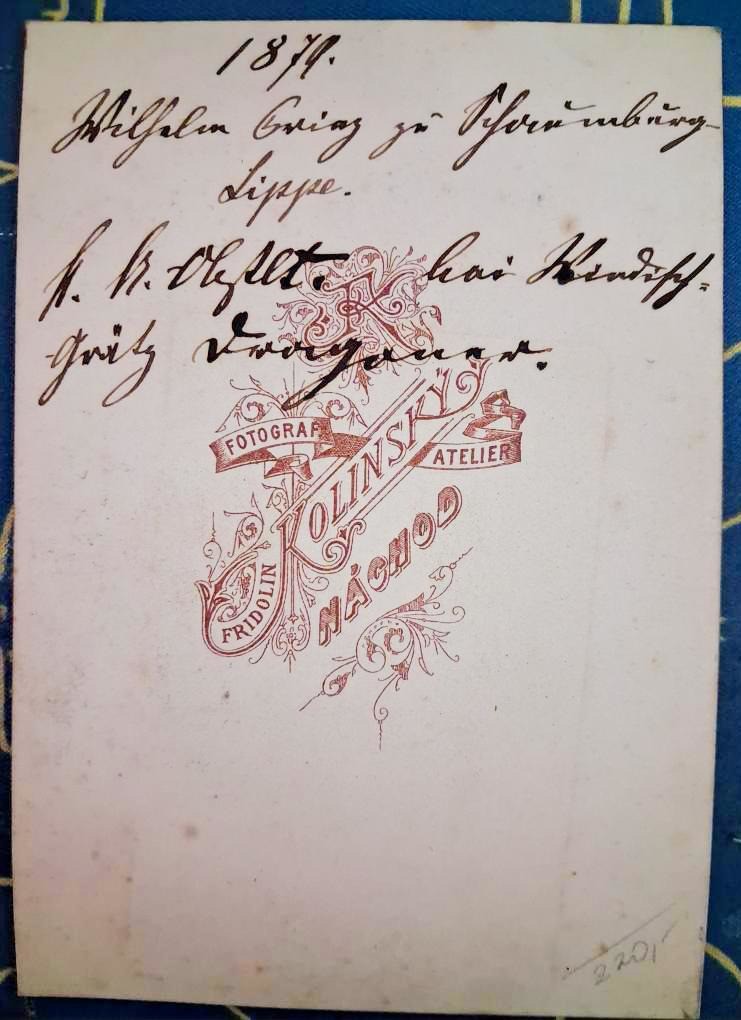 1879.
Wilhelm Prinz zu Schaumburg-
Lippe.
K. K. Obstlt. bei Windisch-
Grätz Dragoner.
FK
FOTOGRAF ATELIER
FRIDOLIN KOLINSKÝ
NÁCHOD